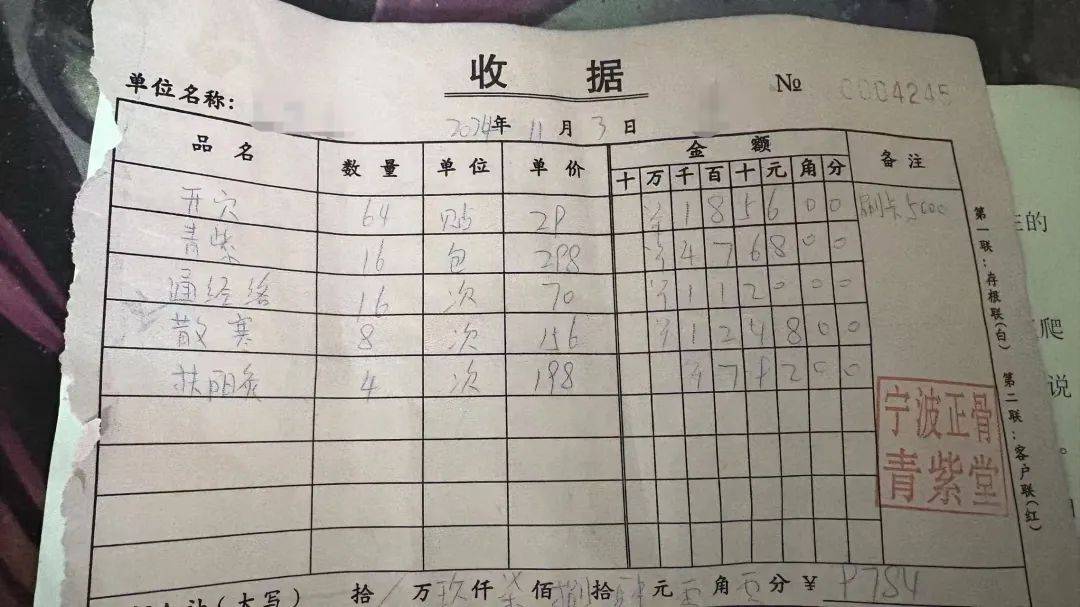 收据
№ 0004245
单位名称:
2024年 11月 3日
品名 数量 单位 单价 金额 备注
十 万 千 百 十 元 角 分
开穴 64 贴 29 ¥ 1 8 5 6 0 0 刷卡5000
青紫 16 包 298 ¥ 4 7 6 8 0 0
通经络 16 次 70 ¥ 1 1 2 0 0 0
散寒 8 次 156 ¥ 1 2 4 8 0 0
扶阳灸 4 次 198 ¥ 7 9 2 0 0
第一联:存根联(白) 第二联:客户联(红)
宁波正骨
青紫堂
(大写) 拾 万 玖 仟 柒 佰 捌 拾 肆 元 角 分 ¥ 9784
的
爬
说
。